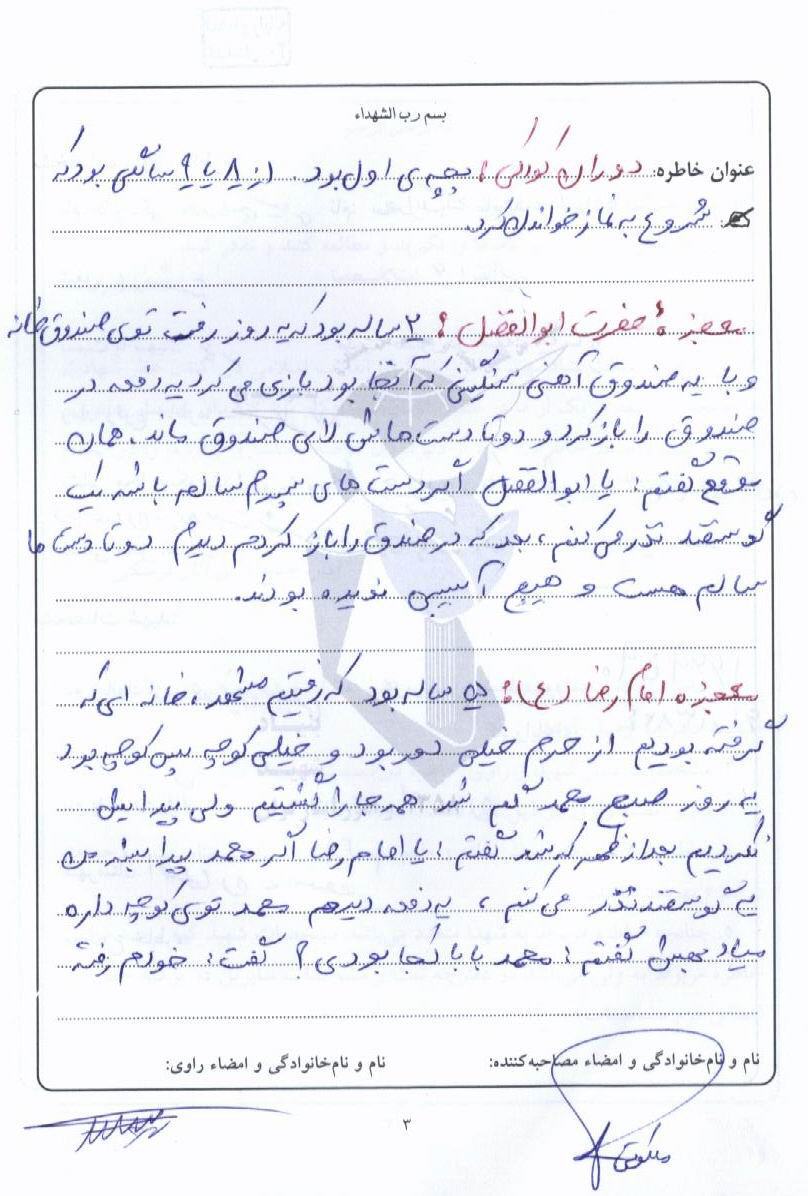 بسم رب الشهداء
عنوان خاطره: دوران کودکی: بچه ی اول بود. از ۸ یا ۹ سالگی بود که
شروع به نماز خواندن کرد.
معجزه حضرت ابوالفضل: ۲ ساله بود که یه روز رفت توی صندوق خانه
و با یه صندوق آهنی سنگینی که آنجا بود بازی می کرد یه دفعه در
صندوق را باز کرد و دوتا دست هاش لای صندوق ماند. همان
موقع گفتم: یا ابوالفضل اگر دست های پسرم سالم باشه یک
گوسفند نذر می کنم، بعد که در صندق را باز کردم دیدم دوتا دست ها
سالم هست و هیچ آسیبی ندیده بودند.
معجزه امام رضا (ع): ۵ ساله بود که رفتیم مشهد، خانه ای که
گرفته بودیم از حرم خیلی دور بود و خیلی کوچه پس کوچه بود
یه روز صبح محمد گم شد همه جا را گشتیم ولی پیدایش
نکردیم بعد از ظهر که شد گفتم: یا امام رضا اگر محمد پیدا بشه من
یه گوسفند نذر می کنم، یه دفعه دیدم محمد توی کوچه داره
میاد بهش گفتم: محمد بابا کجا بودی؟ گفت: خودم رفته
نام و نام‌خانوادگی و امضاء مصاحبه‌کننده:
نام و نام‌خانوادگی و امضاء راوی:
۳